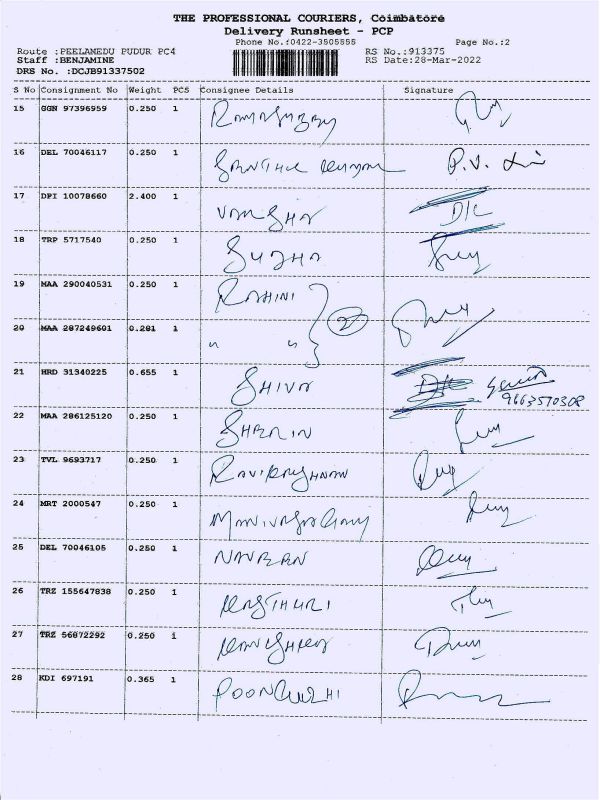 THE PROFESSIONAL COURIERS, Coimbatore
Delivery Runsheet - PCP
Phone No.:0422-3505855 Page No.:2
Route :PEELAMEDU PUDUR PC4 RS No.:913375
Staff :BENJAMINE RS Date:28-Mar-2022
DRS No. :DCJB91337502
S No Consignment No Weight PCS Consignee Details Signature
15 GGN 97396959 0.250 1
16 DEL 70046117 0.250 1 P.V.
17 DPI 10078660 2.400 1 D/L
18 TRP 5717540 0.250 1 SUJHA
19 MAA 290040531 0.250 1 ROHINI
20 MAA 287249601 0.281 1 " " 2
21 HRD 31340225 0.655 1 SHIVA D/L
9663570308
22 MAA 286125120 0.250 1 SHERIN
23 TVL 9693717 0.250 1
24 MRT 2000547 0.250 1
25 DEL 70046105 0.250 1 NAVEEN
26 TRZ 155647838 0.250 1 KASTHURI
27 TRZ 56872292 0.250 1
28 KDI 697191 0.365 1 POONGUZHI